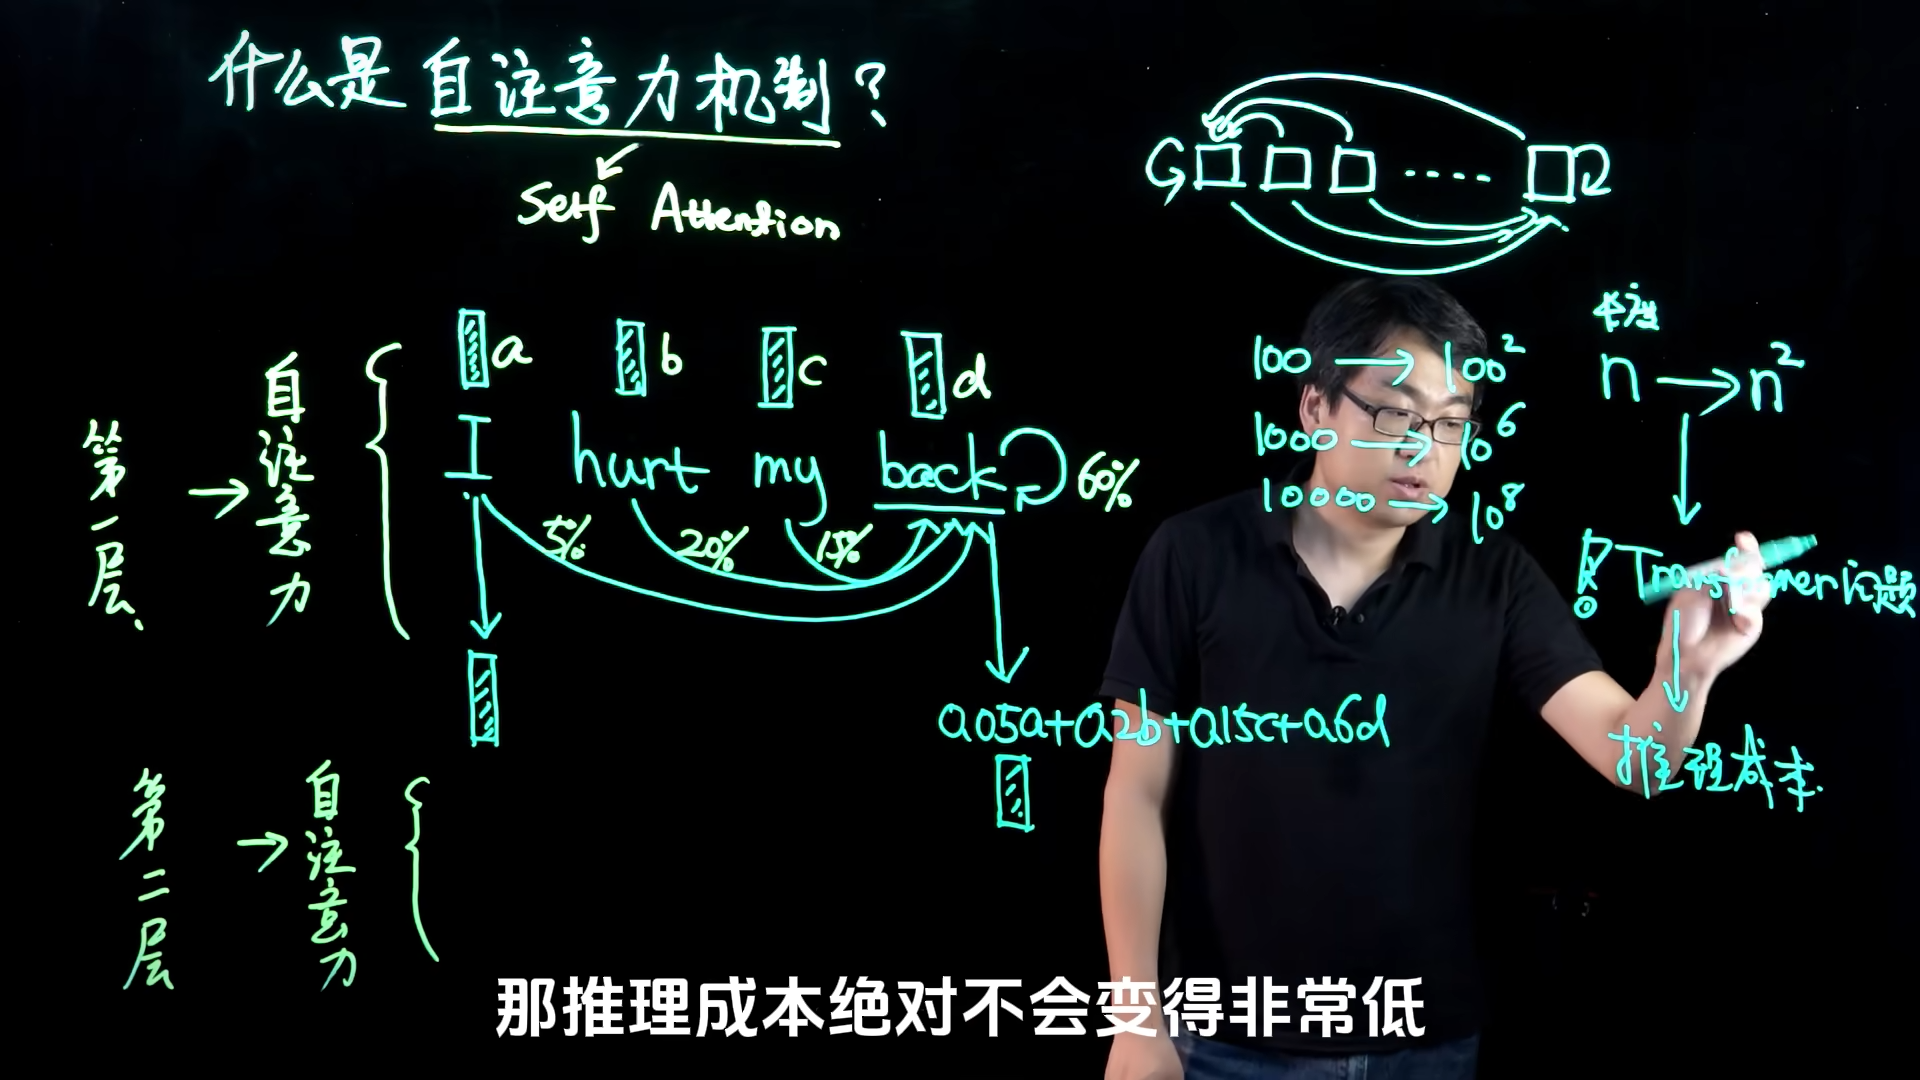 什么是自注意力机制?
Self Attention
第一层
→
自注意力
a
b
c
d
I hurt my back
60%
5%
20%
15%
0.05a+0.2b+0.15c+0.6d
第二层
→
自注意力
100 → 100²
1000 → 10⁶
10000 → 10⁸
长度
n → n²
! Transformer问题
推理成本
那推理成本绝对不会变得非常低